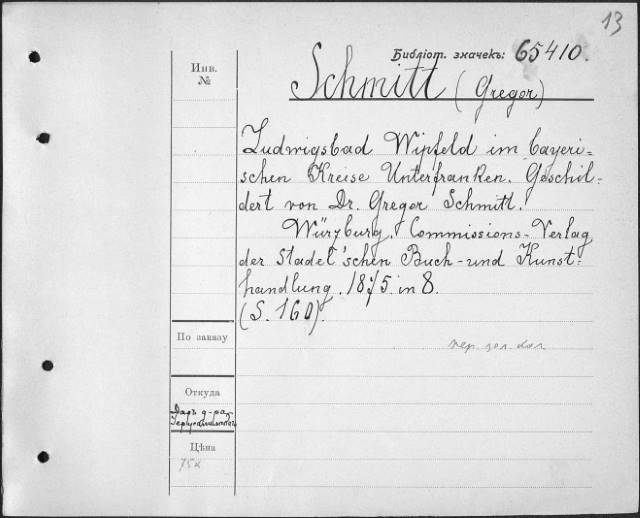 13
Библіот. значекъ: 65410.
Инв.
№
Schmitt (Gregor)
Ludwigsbad Wipfeld im bayeri-
schen Kreise Unterfranken. Geschil-
dert von Dr. Gregor Schmitt.
Würzburg. Commissions-Verlag
der Stadel'schen Buch- und Kunst-
handlung. 1875. in 8.
(S. 160).
По заказу
Откуда
Даръ д-ра
Цѣна
75к